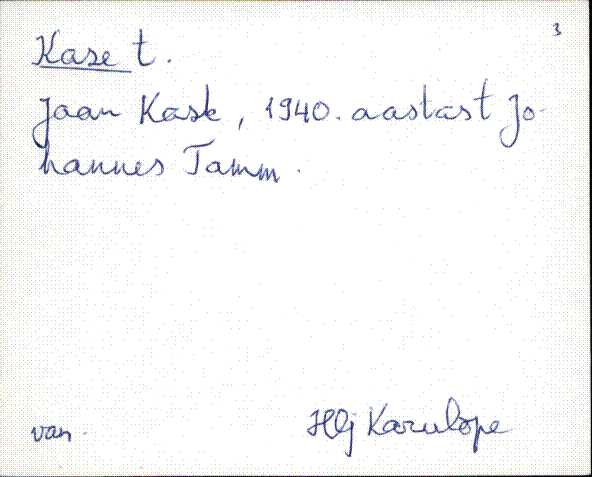 3
Kase t.
Jaan Kask, 1940. aastast Jo-
hannes Tamm.
van.
Hlj Karulõpe